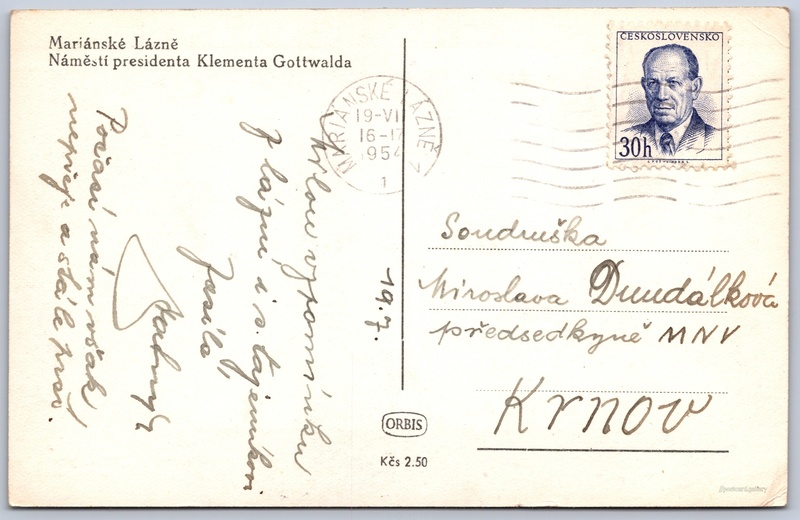 Mariánské Lázně
Náměstí presidenta Klementa Gottwalda
MARIÁNSKÉ LÁZNĚ
19-VII
16-17
1954
1
ČESKOSLOVENSKO
30h
19.7.
Milou vzpomínku
z lázní i s. tajemníkovi
posílá
Počasí nám však
nepřeje a stále prší.
Soudružka
Miroslava Dundálková
předsedkyně MNV
Krnov
ORBIS
Kčs 2.50